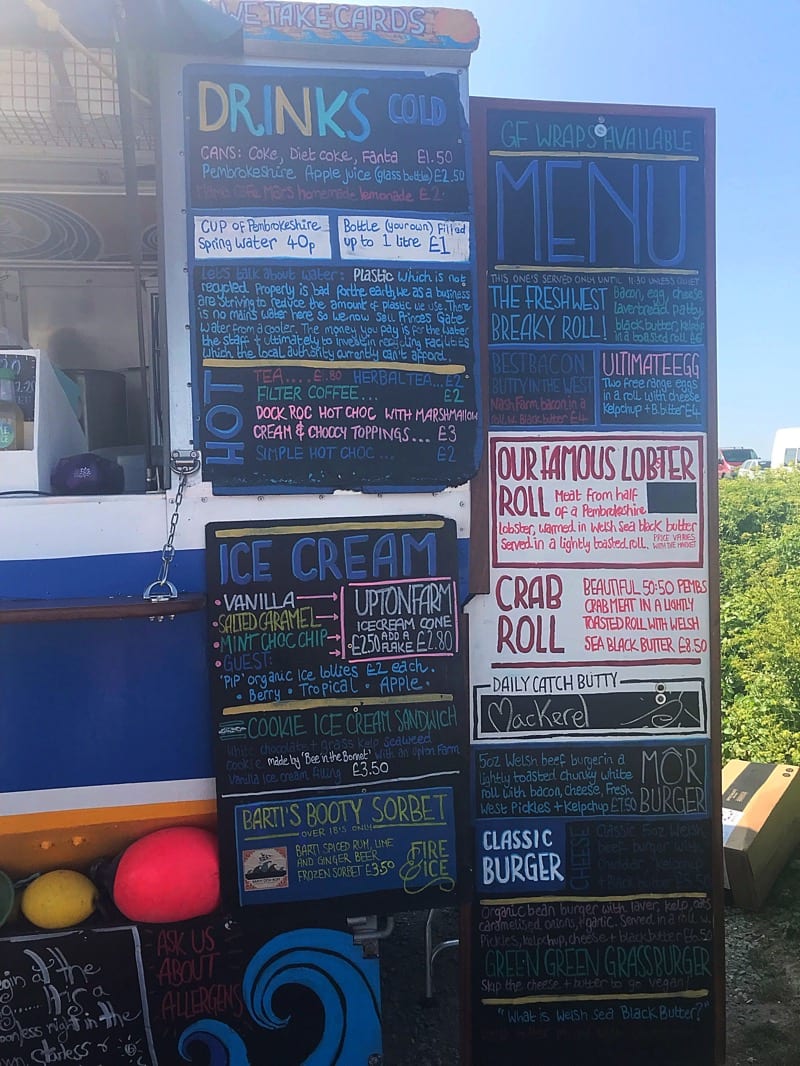 WE TAKE CARDS
DRINKS COLD
CANS: Coke, Diet coke, Fanta £1.50
Pembrokeshire Apple juice (glass bottle) £2.50
homemade lemonade £2.
CUP OF Pembrokeshire
Spring water 40p
Bottle (your own) filled
up to 1 litre £1
Let's talk about water: Plastic which is not
recycled Properly is bad for the earth. We as a business
are striving to reduce the amount of plastic we use. There
is no mains water here so we now sell Princes Gate
water from a cooler. The money you pay is for the water
the staff + ultimately to invest in recycling facilities
which the local authority currently can't afford.
HOT
TEA.... £1.80 HERBAL TEA... £2
FILTER COFFEE... £2
DOCK ROC HOT CHOC WITH MARSHMALLOW
CREAM & CHOCCY TOPPINGS... £3
SIMPLE HOT CHOC ... £2
ICE CREAM
• VANILLA
• SALTED CARAMEL
• MINT CHOC CHIP
• GUEST:
UPTON FARM
ICECREAM CONE
£2.50 ADD A FLAKE £2.80
'PiP' organic Ice lollies £2 each.
• Berry • Tropical • Apple •
COOKIE ICE CREAM SANDWICH
White chocolate + grass kelp seaweed
cookie made by 'Bee in the Bonnet' with an Upton Farm
Vanilla ice cream filling £3.50
BARTI'S BOOTY SORBET
OVER 18'S ONLY
BARTI SPICED RUM, LIME
AND GINGER BEER
FROZEN SORBET £3.50
FIRE & ICE
ASK US
ABOUT
ALLERGENS
at the
is a
night in the
starless
GF WRAPS AVAILABLE
MENU
THIS ONE'S SERVED ONLY UNTIL 11:30 UNLESS QUIET
THE FRESHWEST
BREAKY ROLL!
Bacon, egg, cheese,
laverbread patty,
black butter, kelchup
in a toasted roll £6
BEST BACON
BUTTY IN THE WEST
Nash Farm bacon in a
roll w. Black butter £4
ULTIMATE EGG
Two free range eggs
in a roll with cheese
Kelpchup + B.butter £4
OUR FAMOUS LOBSTER
ROLL Meat from half
of a Pembrokeshire
lobster, warmed in Welsh Sea black butter
Served in a lightly toasted roll. PRICE VARIES
WITH THE MARKET
CRAB
ROLL
BEAUTIFUL 50:50 PEMBS
CRAB MEAT IN A LIGHTLY
TOASTED ROLL WITH WELSH
SEA BLACK BUTTER £8.50
DAILY CATCH BUTTY
Mackerel
5oz Welsh beef burger in a
lightly toasted chunky white
roll with bacon, cheese, Fresh
West Pickles + Kelpchup £7.50
MÔR
BURGER
CLASSIC
BURGER
CHEESE
Classic 5oz Welsh
beef burger with
cheddar,
+ Black butter
Organic bean burger with laver, kelp, oats
caramelised onions, + garlic. Served in a roll w.
Pickles, kelpchup, cheese + black butter £6.50
GREEN GREEN GRASS BURGER
Skip the cheese + butter to go vegan!
"What is Welsh Sea Black Butter?"